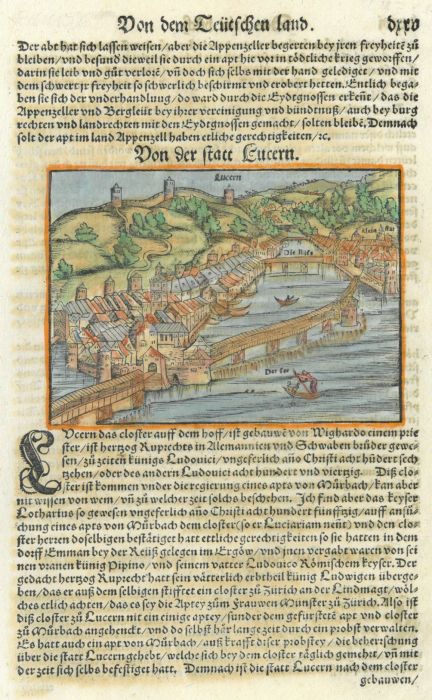 Von dem Teütschen land. dxxv
Der abt hat sich lassen weisen/ aber die Appenzeller begerten bey jren freyheitē zů
bleiben/ vnd besund dieweil sie durch ein apt hie vor in tödtliche krieg geworffen/
darin sie leib vnd gůt verlorē/ vñ doch sich selbs mit der hand gelediget/ vnd mit
dem schwert jr freyheit so schwerlich beschirmt vnd erobert hetten. Entlich bega-
ben sie sich der vnderhandlung/ do ward durch die Eydtgnossen erkēnt/ das die
Appenzeller vnd Bergleüt bey ihrer vereinigung vnd bündtnuß/ auch bey burg
rechten vnd landrechten mit den Eydtgnossen gemacht/ solten bleibē. Demnach
solt der apt im land Appenzell haben etliche gerechtigkeiten/ ⁊c.
Von der statt Lucern.
Lucern
Klein stat
Die Rüß
Der see
LVcern das closter auff dem hoff/ ist gebauwē von Wighardo einem prie
ster/ ist hertzog Ruprechts in Alemannien vnd Schwaben brůder gewe-
sen/ zů zeitē künigs Ludouici/ vngeferlich año Christi acht hūdert sech
tzehen/ oder des andern Ludouici acht hundert vnd viertzig. Diß clo-
ster ist kommen vnder die regierung eines apts von Můrbach/ kan aber
nit wissen von wem/ vñ zů welcher zeit solchs beschehen. Ich find aber das keyser
Lotharius so gewesen vngeferlich año Christi acht hundert fünfftzig/ auff ansů-
chung eines apts von Můrbach dem closter (so er Luciariam nent) vnd den clo-
ster herren doselbigen bestätiget hatt ettliche gerechtigkeiten so sie hatten in dem
dorff Emman bey der Reüß gelegen im Ergöw/ vnd jnen vergabt waren von sei
nen vranen künig Pipino/ vnd seinem vatter Ludouico Römischem keyser. Der
gedacht hertzog Ruprecht hatt sein vätterlich erbtheil künig Ludwigen übergе-
ben/ das er auß dem selbigen stifftet ein closter zů Zürich an der Lindmagt/ wöl-
ches etlich achten/ das es sey die Aptey zům Frauwen Münster zů Zürich. Also ist
diß closter zů Lucern nit ein einige aptey/ sunder dem gefürstetē apt vnd closter
zů Můrbach angehenckt/ vnd do selbst här lange zeit durch ein probst verwalten.
Es hatt auch ein apt von Můrbach/ auß krafft doser probstey/ die beherschung
über die statt Lucern gehebt/ welche sich bey dem closter täglich gemehrt/ vñ mit
der zeit sich selbs befestiget hatt. Demnach ist die statt Lucern nach dem closter
gebauwen/